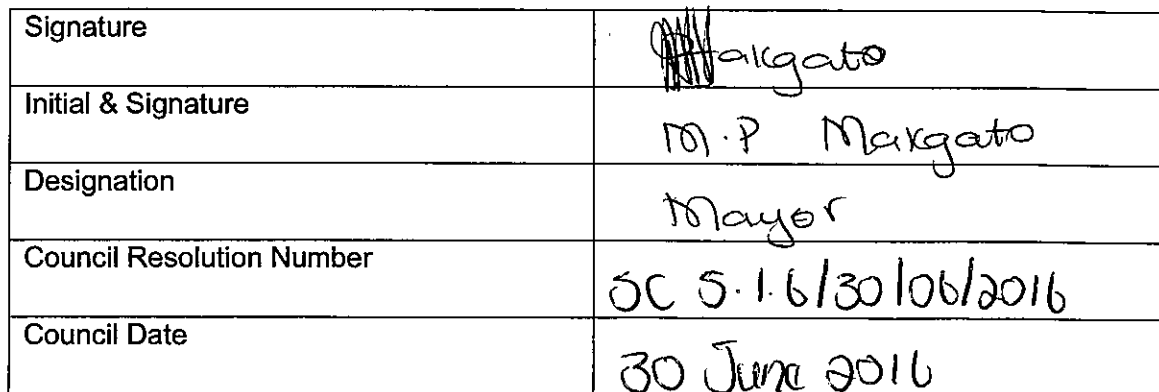 Signature
Makgato
Initial & Signature
M.P Makgato
Designation
Mayor
Council Resolution Number
SC 5.1.6/30/06/2016
Council Date
30 June 2016